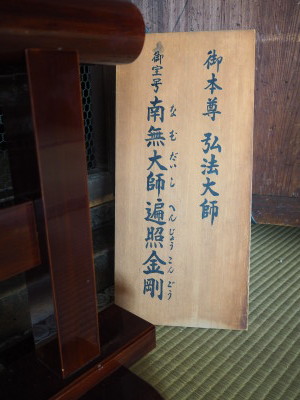 御本尊 弘法大師
御宝号 南無大師遍照金剛
なむだいしへんじょうこんごう